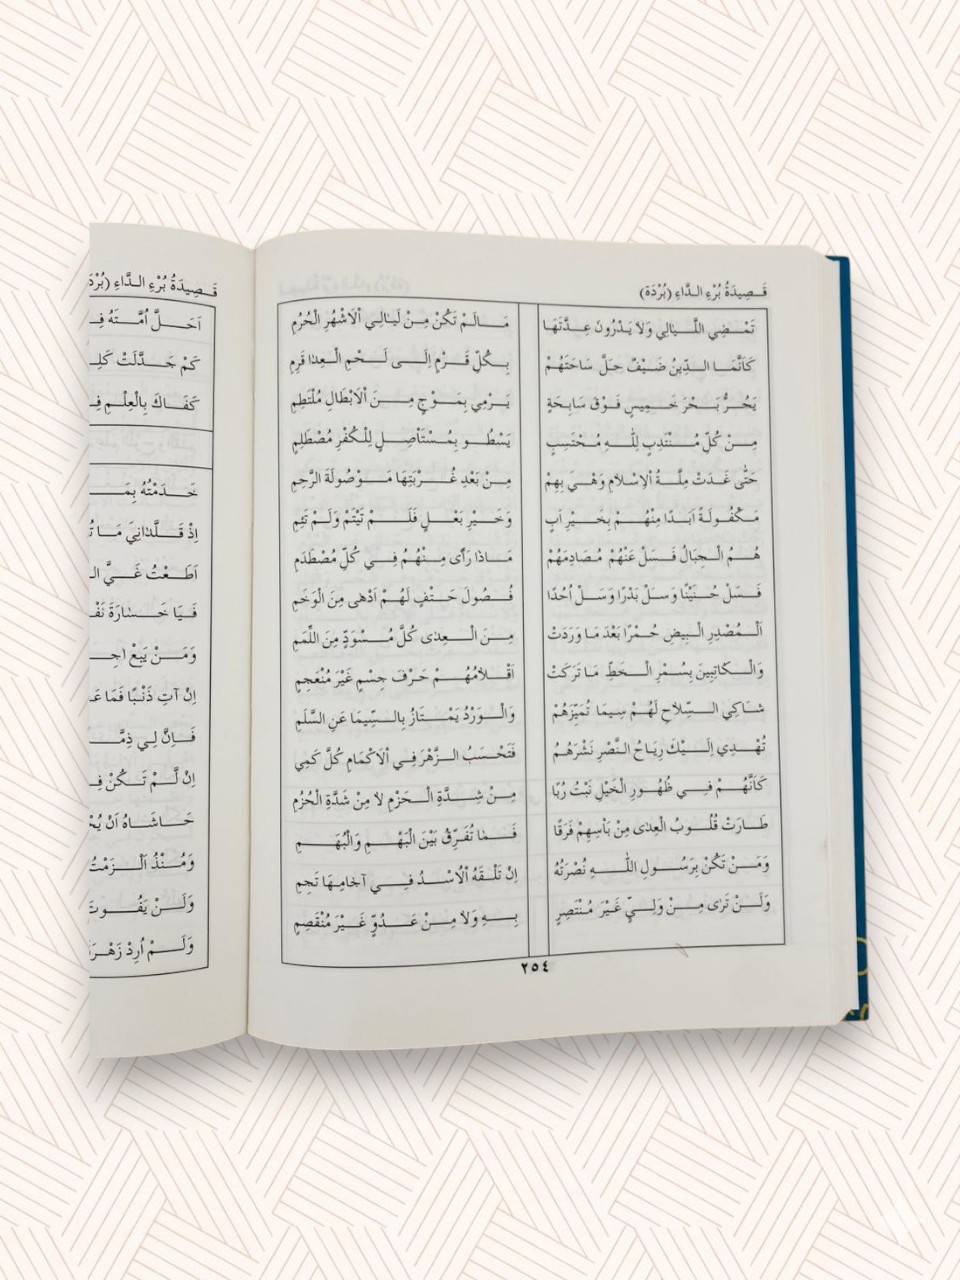 قَصِيدَةُ بُرْءِ الدَّاءِ (بُرْدَة)
تَمْضِي اللَّيَالِي وَلَا يَدْرُونَ عِدَّتَهَا مَالَمْ تَكُنْ مِنْ لَيَالِي الْاَشْهُرِ الْحُرُمِ
كَاَنَّمَا الدِّينُ ضَيْفٌ حَلَّ سَاحَتَهُمْ بِكُلِّ قَرْمٍ اِلَى لَحْمِ الْعِدٰا قَرِمِ
يَجُرُّ بَحْرَ خَمِيسٍ فَوْقَ سَابِحَةٍ يَرْمِي بِمَوْجٍ مِنَ الْاَبْطَالِ مُلْتَطِمِ
مِنْ كُلِّ مُنْتَدِبٍ لِلّٰهِ مُحْتَسِبٍ يَسْطُو بِمُسْتَأْصِلٍ لِلْكُفْرِ مُصْطَلِمِ
حَتّٰى غَدَتْ مِلَّةُ الْاِسْلَامِ وَهْيَ بِهِمْ مِنْ بَعْدِ غُرْبَتِهَا مَوْصُولَةَ الرَّحِمِ
مَكْفُولَةً اَبَدًا مِنْهُمْ بِخَيْرِ اَبٍ وَخَيْرِ بَعْلٍ فَلَمْ تَيْتَمْ وَلَمْ تَئِمِ
هُمُ الْجِبَالُ فَسَلْ عَنْهُمْ مُصَادِمَهُمْ مَاذَا رَاٰى مِنْهُمُ فِي كُلِّ مُصْطَدَمِ
فَسَلْ حُنَيْنًا وَسَلْ بَدْرًا وَسَلْ اُحُدًا فُصُولَ حَتْفٍ لَهُمْ اَدْهٰى مِنَ الْوَخَمِ
اَلْمُصْدِرِ الْبِيضِ حُمْرًا بَعْدَ مَا وَرَدَتْ مِنَ الْعِدٰى كُلَّ مُسْوَدٍّ مِنَ اللِّمَمِ
وَالْكَاتِبِينَ بِسُمْرِ الْخَطِّ مَا تَرَكَتْ اَقْلَامُهُمْ حَرْفَ جِسْمٍ غَيْرَ مُنْعَجِمِ
شَاكِي السِّلَاحِ لَهُمْ سِيمَا تُمَيِّزُهُمْ وَالْوَرْدُ يَمْتَازُ بِالسِّيمَا عَنِ السَّلَمِ
تُهْدِي اِلَيْكَ رِيَاحُ النَّصْرِ نَشْرَهُمُ فَتَحْسَبُ الزَّهْرَ فِي الْاَكْمَامِ كُلَّ كَمِي
كَاَنَّهُمْ فِي ظُهُورِ الْخَيْلِ نَبْتُ رُبًا مِنْ شِدَّةِ الْحَزْمِ لَا مِنْ شَدَّةِ الْحُزُمِ
طَارَتْ قُلُوبُ الْعِدٰى مِنْ بَاْسِهِمْ فَرَقًا فَمَا تُفَرِّقُ بَيْنَ الْبَهْمِ وَالْبُهَمِ
وَمَنْ تَكُنْ بِرَسُولِ اللّٰهِ نُصْرَتُهُ اِنْ تَلْقَهُ الْاُسْدُ فِي آجَامِهَا تَجِمِ
وَلَنْ تَرٰى مِنْ وَلِيٍّ غَيْرَ مُنْتَصِرٍ بِهِ وَلَا مِنْ عَدُوٍّ غَيْرَ مُنْقَصِمِ
٢٥٤
قَصِيدَةُ بُرْءِ الدَّاءِ (بُرْدَ
اَحَلَّ اُمَّتَهُ فِ
كَمْ جَدَّلَتْ كَلِ
كَفَاكَ بِالْعِلْمِ فِ
خَدَمْتُهُ بِمَ
اِذْ قَلَّدَانِيَ مَا تُ
اَطَعْتُ غَيَّ ال
فَيَا خَسَارَةَ نَفْ
وَمَنْ يَبِعْ اٰجِ
اِنْ آتِ ذَنْبًا فَمَا عَ
فَاِنَّ لِي ذِمَّ
اِنْ لَمْ تَكُنْ فِ
حَاشَاهُ اَنْ يُحْ
وَمُنْذُ اَلْزَمْتُ
وَلَنْ يَفُوتَ
وَلَمْ اُرِدْ زَهْرَةَ